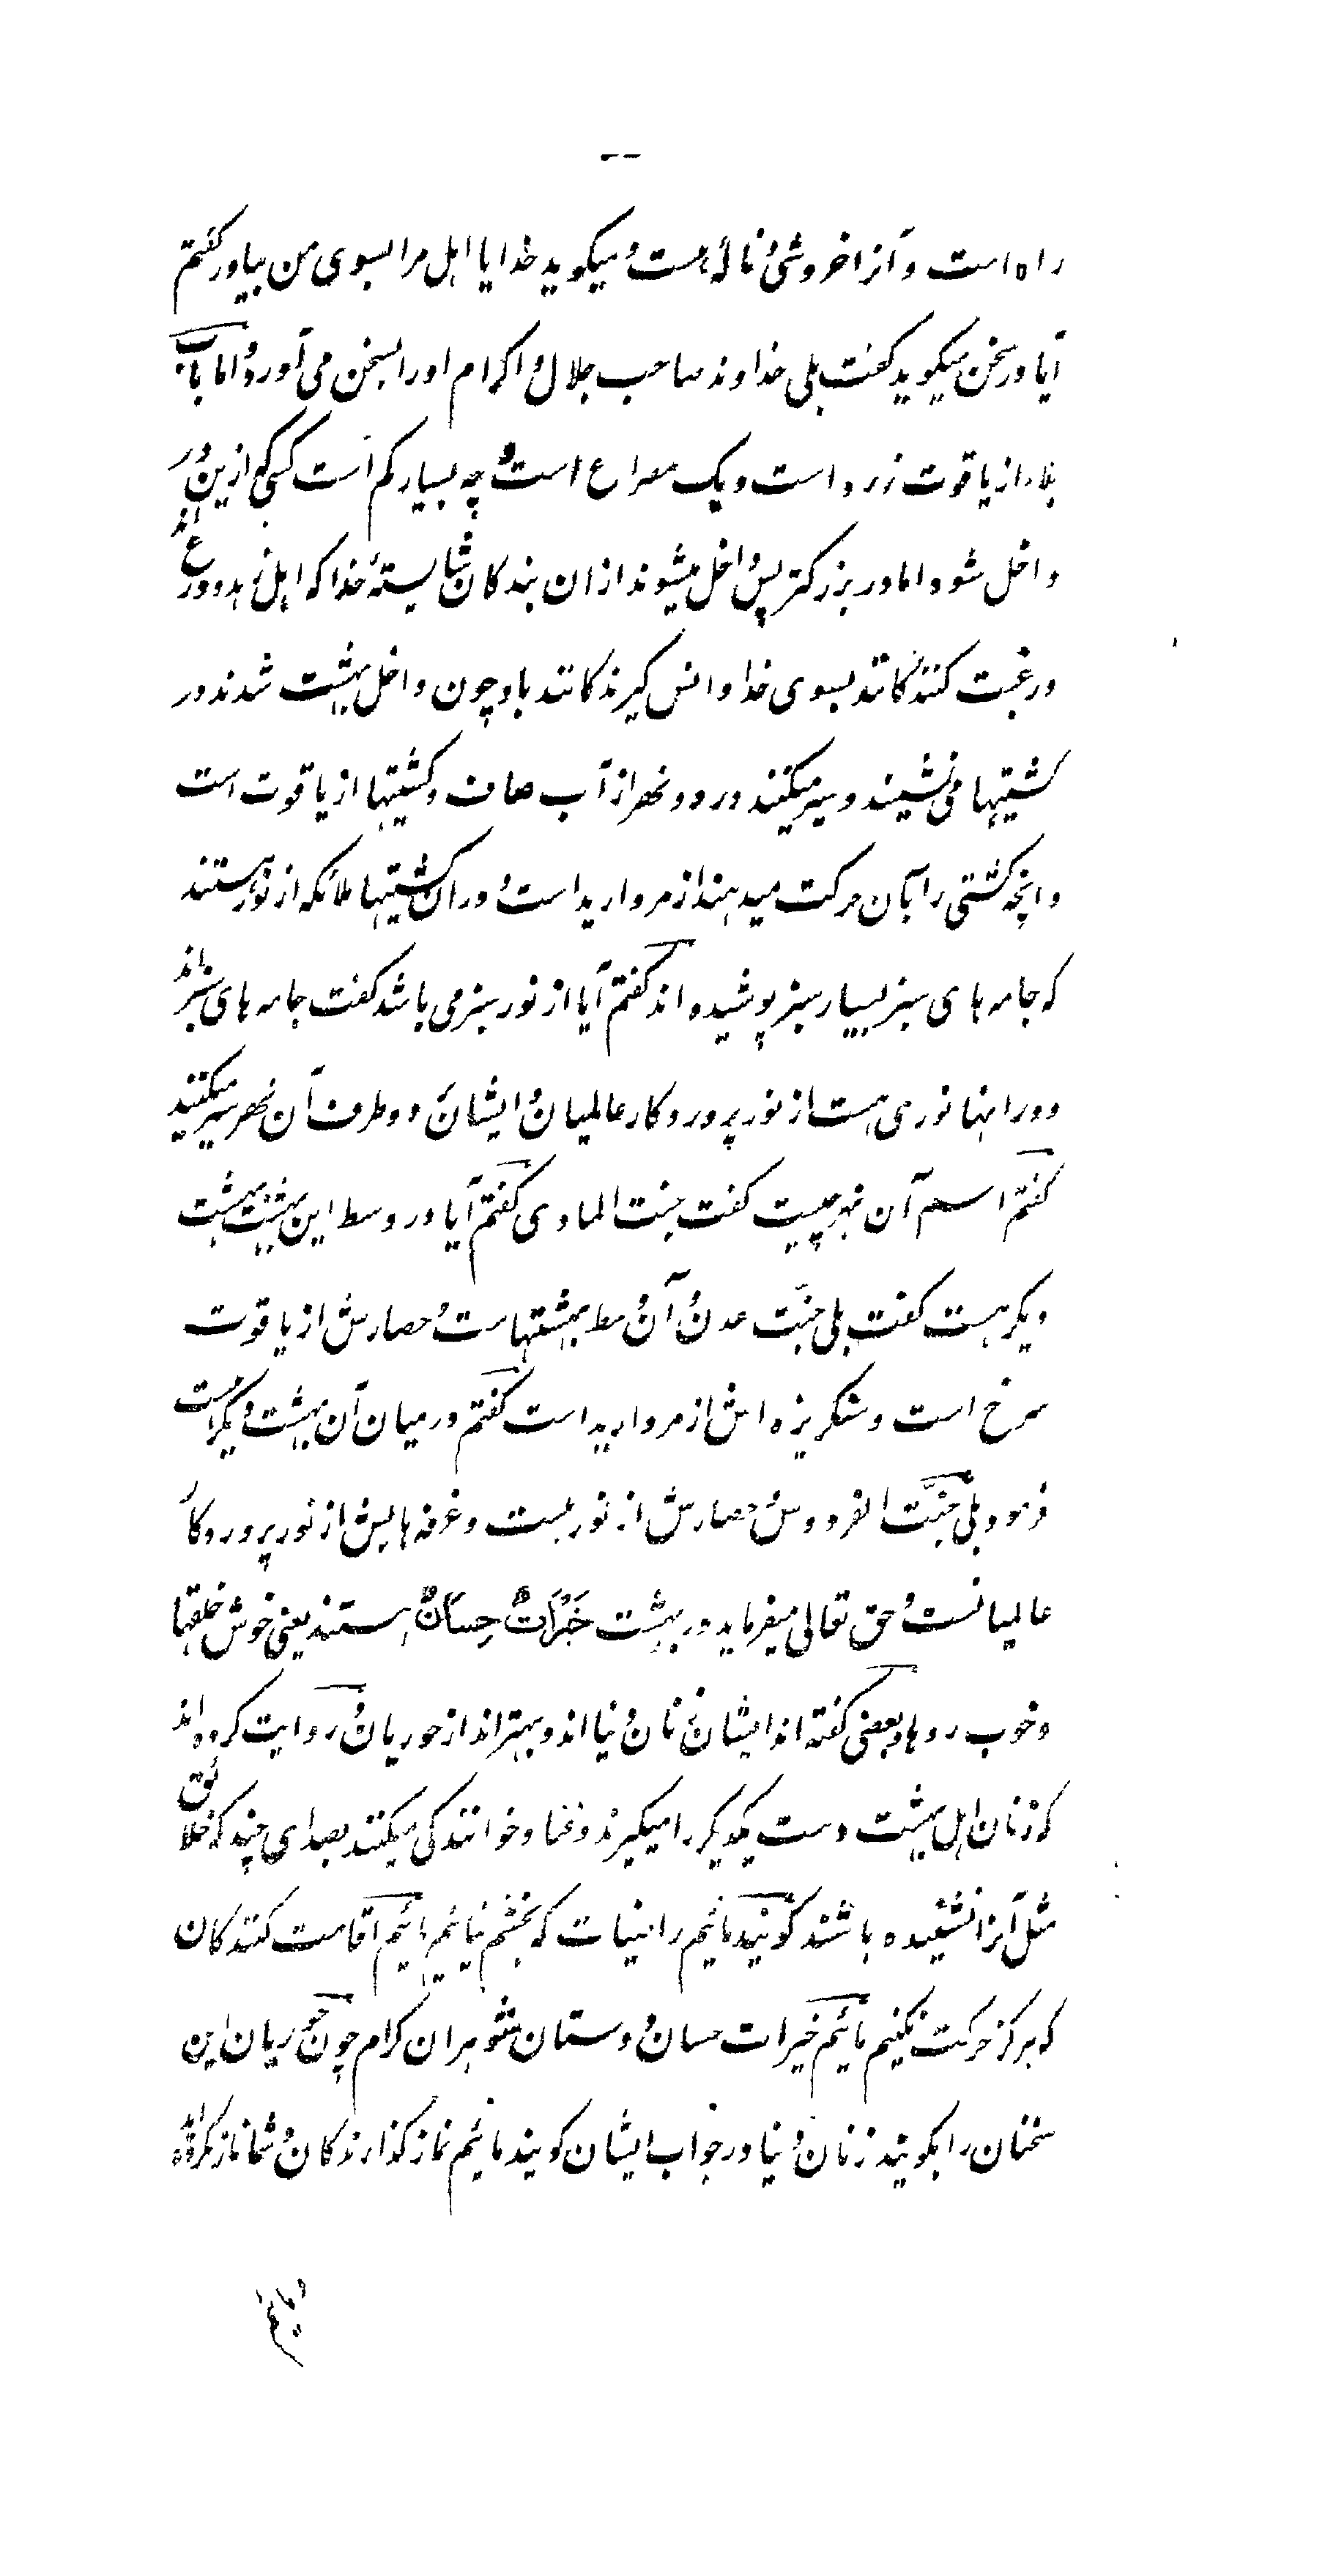 راه است و آنرا خروشی و نالهٔ هست و میکوید خدایا اهل مرا بسوی من بیاور کفتم
آیا در سخن میکوید کفت بلی خداوند صاحب جلال و اکرام او را بسخن می آورد و اما باب
بلا از یاقوت زرد است و یک مصراع است و چه بسیار کم است کسی که ازین در
داخل شود و اما در بزرکتر پس داخل میشوند ازان بندکان شایستهٔ خدا که اهل زهد و ورع اند
و رغبت کنندکانند بسوی خدا و انس کیرندکانند باو چون داخل بهشت شدند در
کشتیها می نشینند و سیر میکنند در دو نهر از آب صاف و کشتیها از یاقوت است
و انچه کشتی را بآن حرکت میدهند از مروارید است و دران کشتیها ملائکه از نور هستند
که جامه های سبز بسیار سبز پوشیده اند کفتم آیا از نور سبز می باشد کفت جامه های سبزاند
و در اینها نوری هست از نور پروردکار عالمیان و ایشان در دو طرف آن نهر سیر میکنند
کفتم اسم آن نهر چیست کفت جنت الماوی کفتم آیا در وسط این بهشت بهشت
دیکر هست کفت بلی جنّت عدن و آن وسط بهشتهاست و حصارش از یاقوت
سرخ است و سنکریزه اش از مروارید است کفتم در میان آن بهشت دیکر هست
فرمود بلی جنّت الفردوس و حصارش از نور است و غرفه هایش از نور پروردکار
عالمیانست و حق تعالی میفرماید در بهشت خَیْرَاتٌ حِسَانٌ هستند یعنی خوش خلقها
و خوب روها و بعضی کفته اند ایشان زنان دنیا اند و بهتراند از حوریان و روایت کرده اند
که زنان اهل بهشت دست یکدیکر را میکیرند و غنا و خوانندکی میکنند بصدای چند که خلائق
مثل آنرا نشنیده باشند کویند مائیم راضیات که بخشم نیائیم مائیم اقامت کنندکان
که هرکز حرکت نکنیم مائیم خیرات حسان و دوستان شوهران کرام چون حوریان این
سخنان را بکویند زنان دنیا در جواب ایشان کویند مائیم نماز کذارندکان و شما نماز نکرده اید
و مائیم